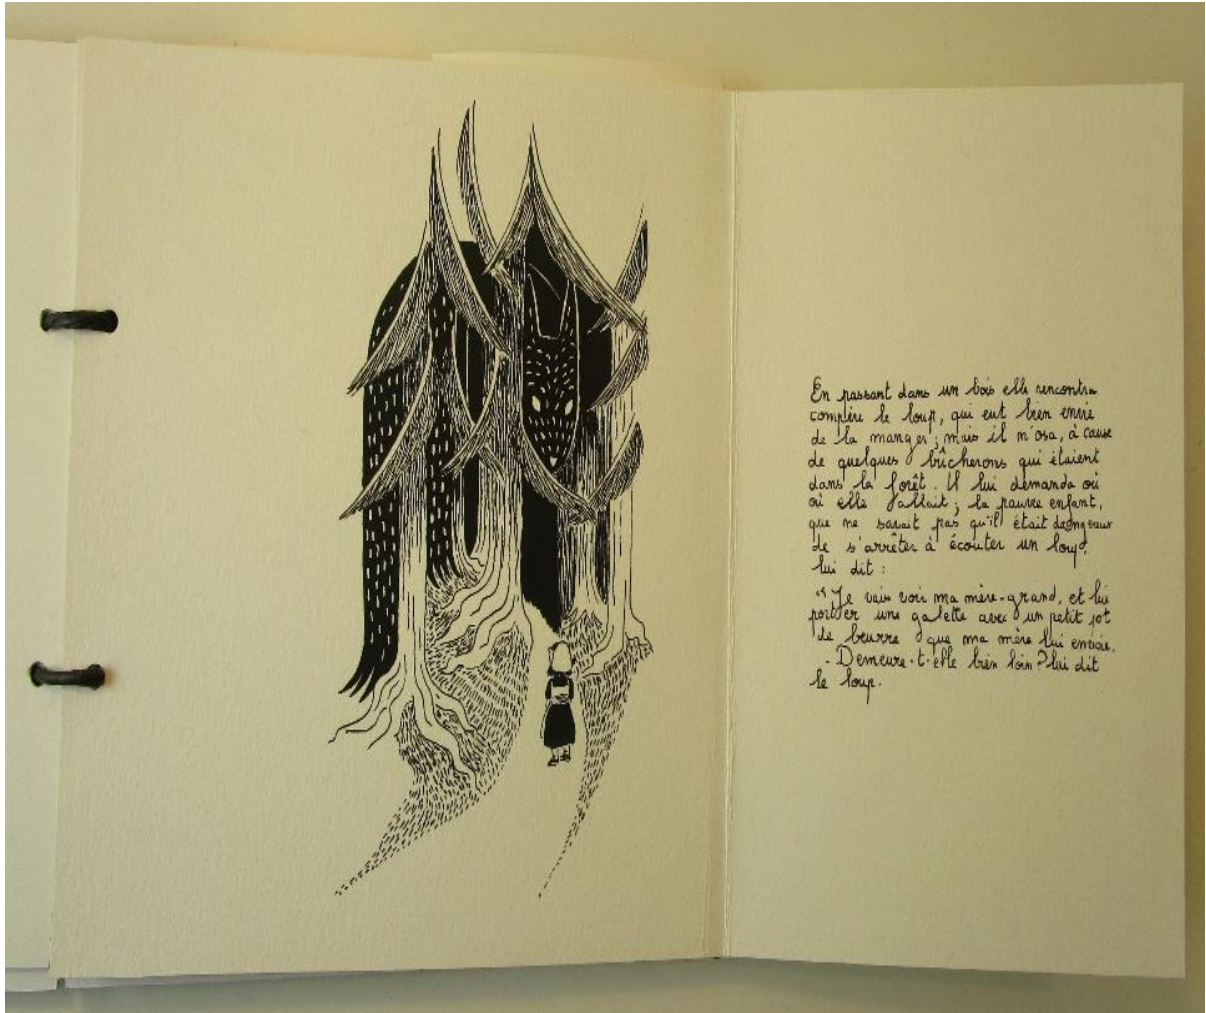 En passant dans un bois elle rencontra
compère le loup, qui eut bien envie
de la manger ; mais il n'osa, à cause
de quelques bûcherons qui étaient
dans la forêt. Il lui demanda où
où elle allait ; la pauvre enfant,
que ne savait pas qu'il était dangereux
de s'arrêter à écouter un loup,
lui dit :
"Je vais voir ma mère-grand, et lui
porter une galette avec un petit pot
de beurre que ma mère lui envoie.
- Demeure-t-elle bien loin ? lui dit
le loup.